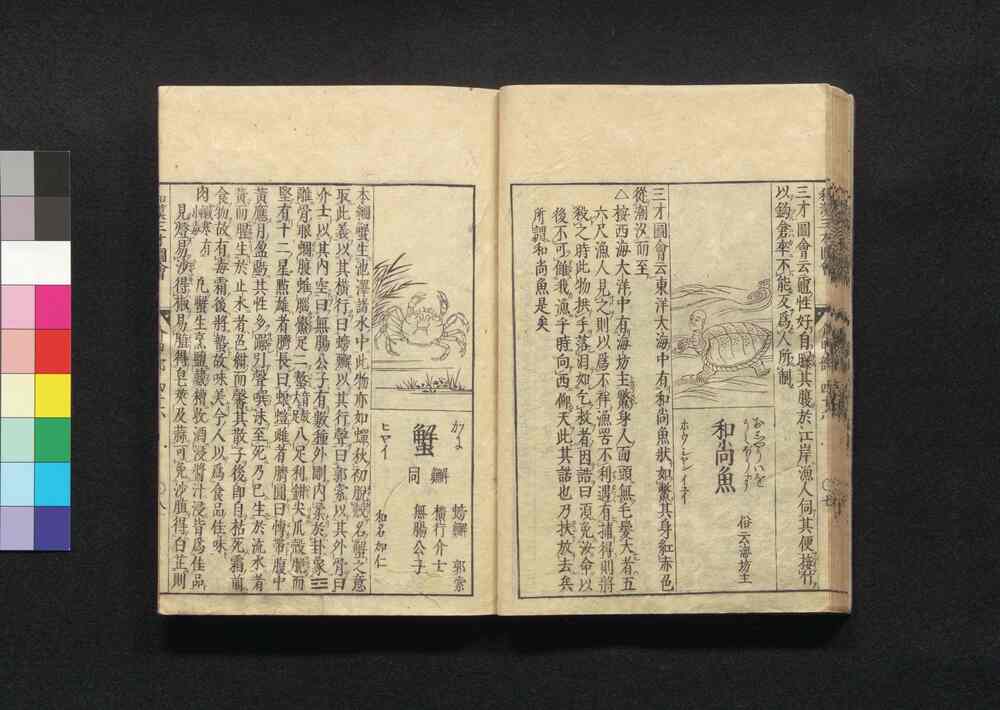 三才圖會云黿性好自曝其腹於江岸漁人伺其便接竹
以鈎倉卒不能反爲人所制
和尚魚
俗云海坊主
ホウシヤンイヱイ
三才圖會云東洋大海中有和尚魚狀如鱉其身紅赤色
從潮汐而至
△按西海大洋中有海坊主鱉身人面頭無毛髮大者五
六尺漁人見之則以爲不祥漁罟不利遇有捕得則將
殺之時此物拱手落淚如乞救者因誥曰須免汝命以
後不可讎我漁乎時向西仰天此其諾也乃扶放去矣
所謂和尚魚是矣
かに
蟹
ヒヤイ
蠏
同
螃蠏 郭索
橫行介士
無腸公子
和名加仁
本綱蟹生池澤諸水中此物亦如蟬秋初脫殼名蟹之意
取此義以其橫行曰螃蠏以其行聲曰郭索以其外骨曰
介士以其內空曰無腸公子有數種外剛內柔於卦象☲
離骨眼蜩腹䖬腦鱟足二螯八足利鉗尖爪殼脆而
堅有十二星㸃雄者臍長曰蜋螘雌者臍圓曰博帶腹中
黃應月盈虧其性多躁引聲噀沫至死乃已生於流水者
黃而腥生於止水者色紺而馨其散子後卽自枯死霜前
食物故有毒霜後將蟄故味美今人以爲食品佳味
肉 鹹寒有小毒 凡蟹生烹鹽藏糟收酒浸醬汁浸皆爲佳品
見燈易沙得椒易䐈得皂莢及蒜可免沙䐈得白芷則